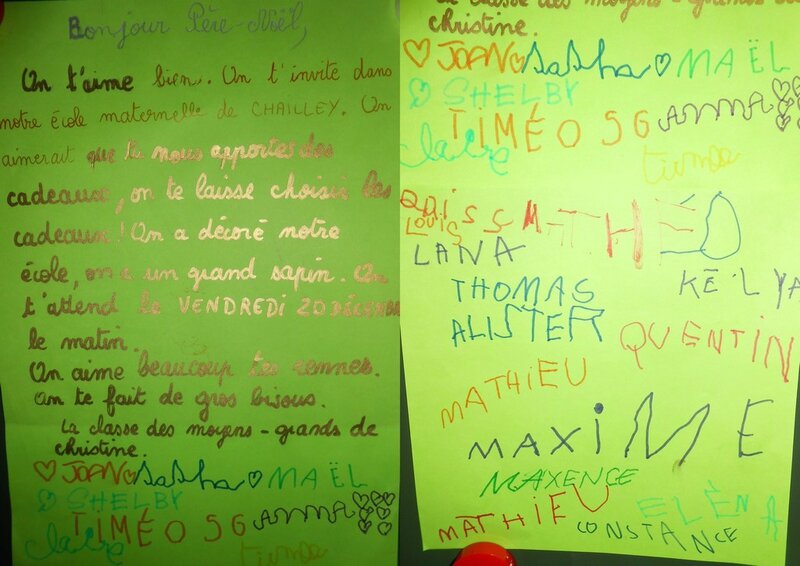 Bonjour Père-Noël,
On t'aime bien. On t'invite dans
notre école maternelle de CHAILLEY. On
aimerait que tu nous apportes des
cadeaux, on te laisse choisir les
cadeaux! On a décoré notre
école, on a un grand sapin. On
t'attend le VENDREDI 20 DÉCEMBRE
le matin.
On aime beaucoup tes rennes.
On te fait de gros bisous.
La classe des moyens-grands de
christine.
♡ JOAN ♡ SaSha ♡ MAËL
♡ SHELBY
TIMÉO 56 ANNA
claire
La classe des moyens-grands de
christine.
♡ JOAN ♡ SaSha ♡ MAËL
♡ SHELBY
TIMÉO 56 ANNA
claire
MATHÉO
LOUIS
LANA
KÉLYA
THOMAS
ALISTER
QUENTIN
MATHIEU
MAXiME
MAXENCE
MATHiEU
ELÉNA
CONSTANCE